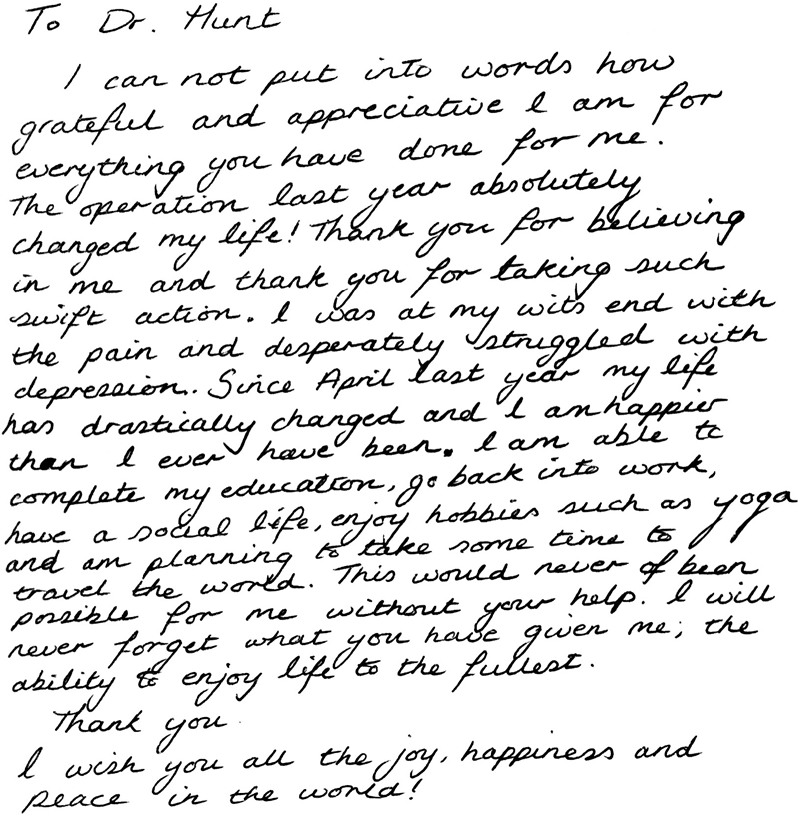 To Dr. Hunt
I can not put into words how
grateful and appreciative I am for
everything you have done for me.
The operation last year absolutely
changed my life! Thank you for believing
in me and thank you for taking such
swift action. I was at my wits end with
the pain and desperately struggled with
depression. Since April last year my life
has drastically changed and I am happier
than I ever have been. I am able to
complete my education, go back into work,
have a social life, enjoy hobbies such as yoga
and am planning to take some time to
travel the world. This would never of been
possible for me without your help. I will
never forget what you have given me; the
ability to enjoy life to the fullest.
Thank you
I wish you all the joy, happiness and
peace in the world!